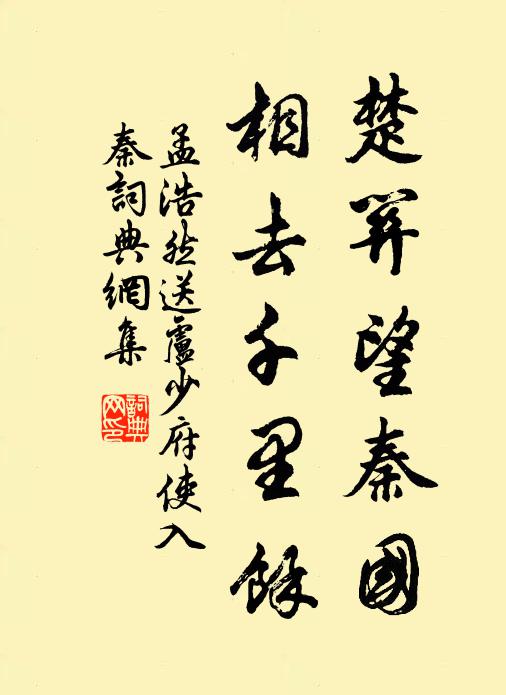 楚關望秦國
相去千里餘
孟浩然送盧少府使入
秦詞典網集
詞典
网印